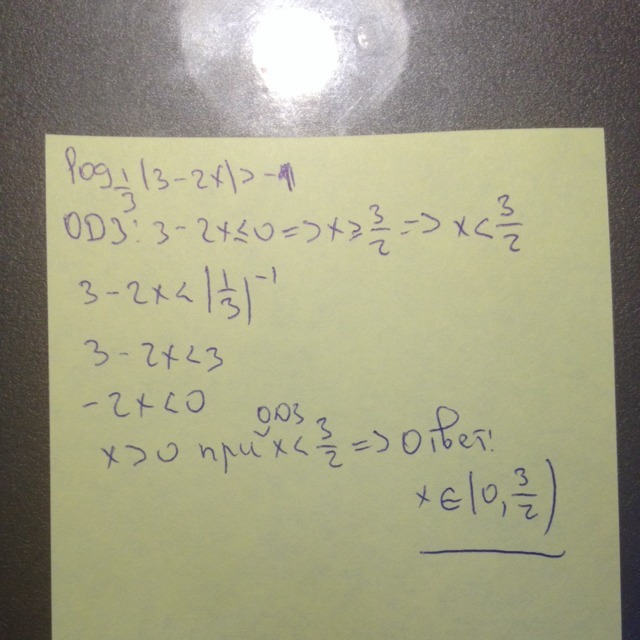 log_{1/3}(3-2x)>-1
ОДЗ: 3-2x≤0=>x≥3/2=>x<3/2
3-2x<(1/3)^{-1}
3-2x<3
-2x<0
ОДЗ
x>0 при x<3/2=>Ответ:
x∈(0,3/2)